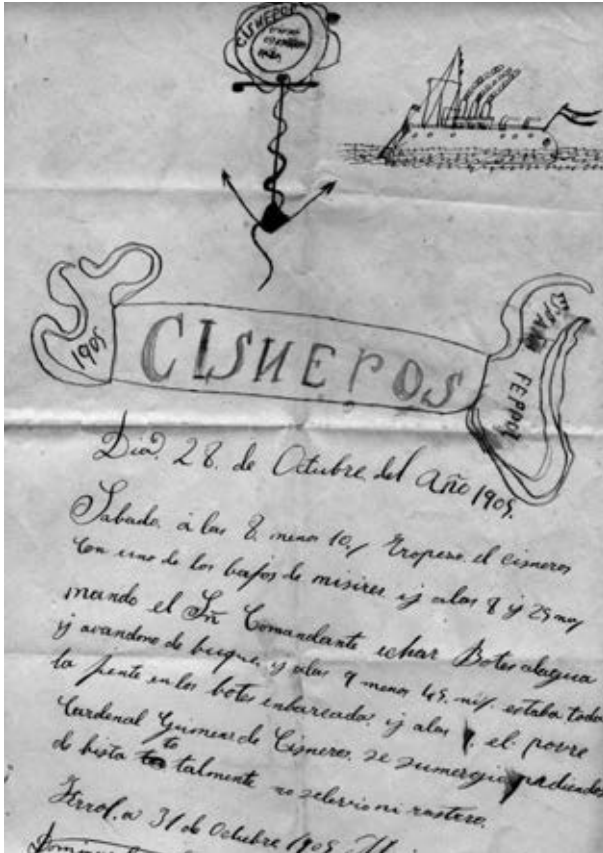 CISNEROS
1905
CISNEROS
ESPAÑA
FERROL
Dia. 28. de Octubre del Año 1905.
Sabado. á las 8 menos 10, Tropeso el cisneros
con uno de los bajos de misires ij alas 8 y 25 my
mando el Sñ Comandante echar Botes alagua
ij avandono de buque, y alas 9 menos 45. estaba toda
la jente en los botes enbarcada, ij alas el povre
Cardenal Gimenes de Cisneros, se sumergio
de bista totalmente no selevio ni rastero.
Ferrol. a 31 de Octubre 1905.